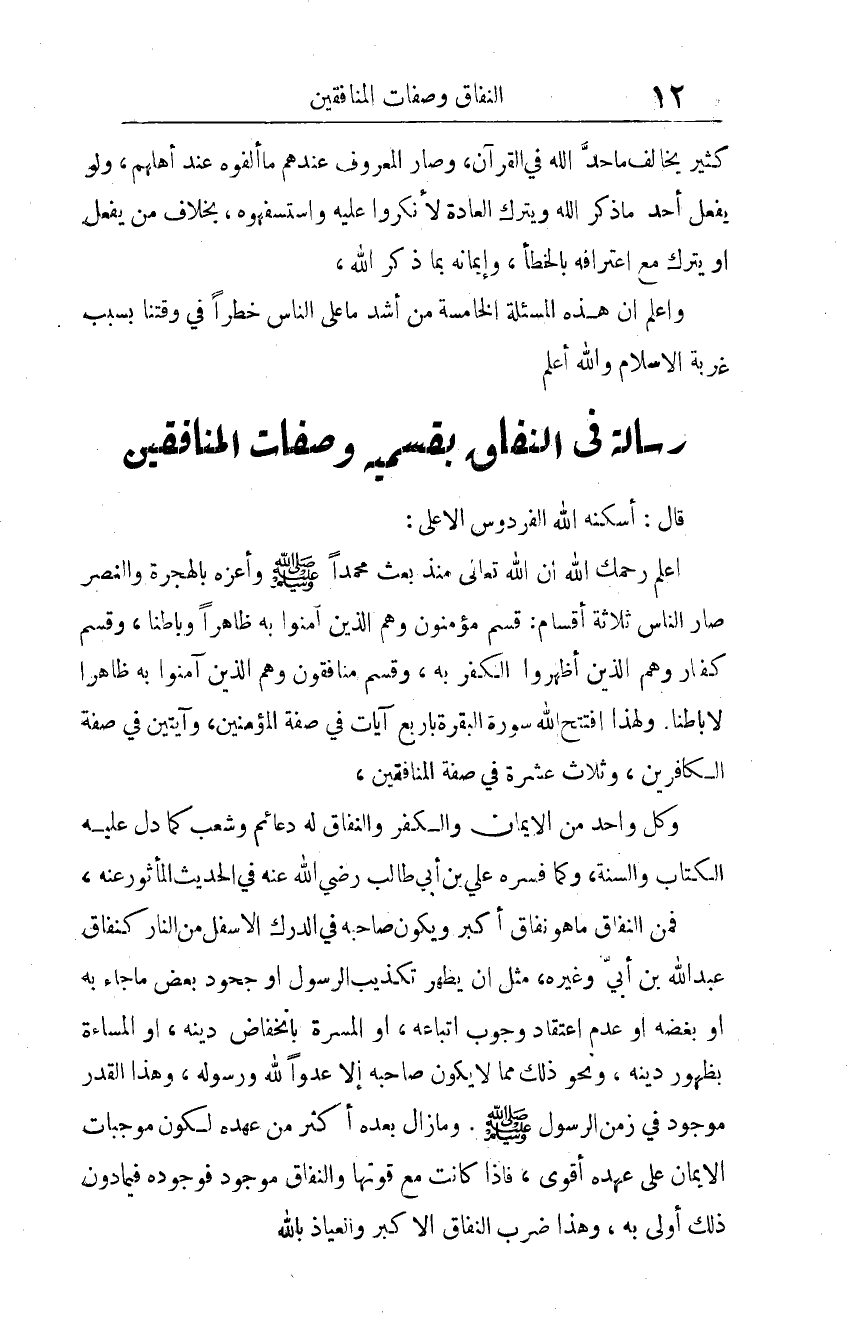 ١٢ النفاق وصفات المنافقين
كثير يخالف ماحدَّ الله في القرآن، وصار المعروف عندهم ماألفوه عند أهلهم، ولو
يفعل أحد ماذكر الله ويترك العادة لأنكروا عليه واستسفهوه، بخلاف من يفعل
او يترك مع اعترافه بالخطأ، وإيمانه بما ذكر الله،
واعلم ان هـذه المسئلة الخامسة من أشد ماعلى الناس خطراً في وقتنا بسبب
غربة الاسلام والله أعلم
رسالة فى النفاق بقسميه وصفات المنافقين
قال: أسكنه الله الفردوس الاعلى:
اعلم رحمك الله ان الله تعالى منذ بعث محمداً ﷺ وأعزه بالهجرة والنصر
صار الناس ثلاثة أقسام: قسم مؤمنون وهم الذين آمنوا به ظاهراً وباطنا، وقسم
كفار وهم الذين أظهروا الكفر به، وقسم منافقون وهم الذين آمنوا به ظاهرا
لاباطنا. ولهذا افتتح الله سورة البقرة باربع آيات في صفة المؤمنين، وآيتين في صفة
الـكافرين، وثلاث عشرة في صفة المنافقين،
وكل واحد من الايمان والـكفر والنفاق له دعائم وشعب كما دل عليـه
الـكتاب والسنة، وكما فسره علي بن أبي طالب رضي الله عنه في الحديث المأثور عنه،
فمن النفاق ماهو نفاق أكبر ويكون صاحبه في الدرك الاسفل من النار كنفاق
عبدالله بن أبيّ وغيره، مثل ان يظهر تكذيب الرسول او جحود بعض ماجاء به
او بغضه او عدم اعتقاد وجوب اتباعه، او المسرة بانخفاض دينه، او المساءة
بظهور دينه، ونحو ذلك مما لايكون صاحبه إلا عدواً لله ورسوله، وهذا القدر
موجود في زمن الرسول ﷺ. ومازال بعده أكثر من عهده لـكون موجبات
الايمان على عهده أقوى، فاذا كانت مع قوتها والنفاق موجود فوجوده فيمادون
ذلك أولى به، وهذا ضرب النفاق الاكبر والعياذ بالله